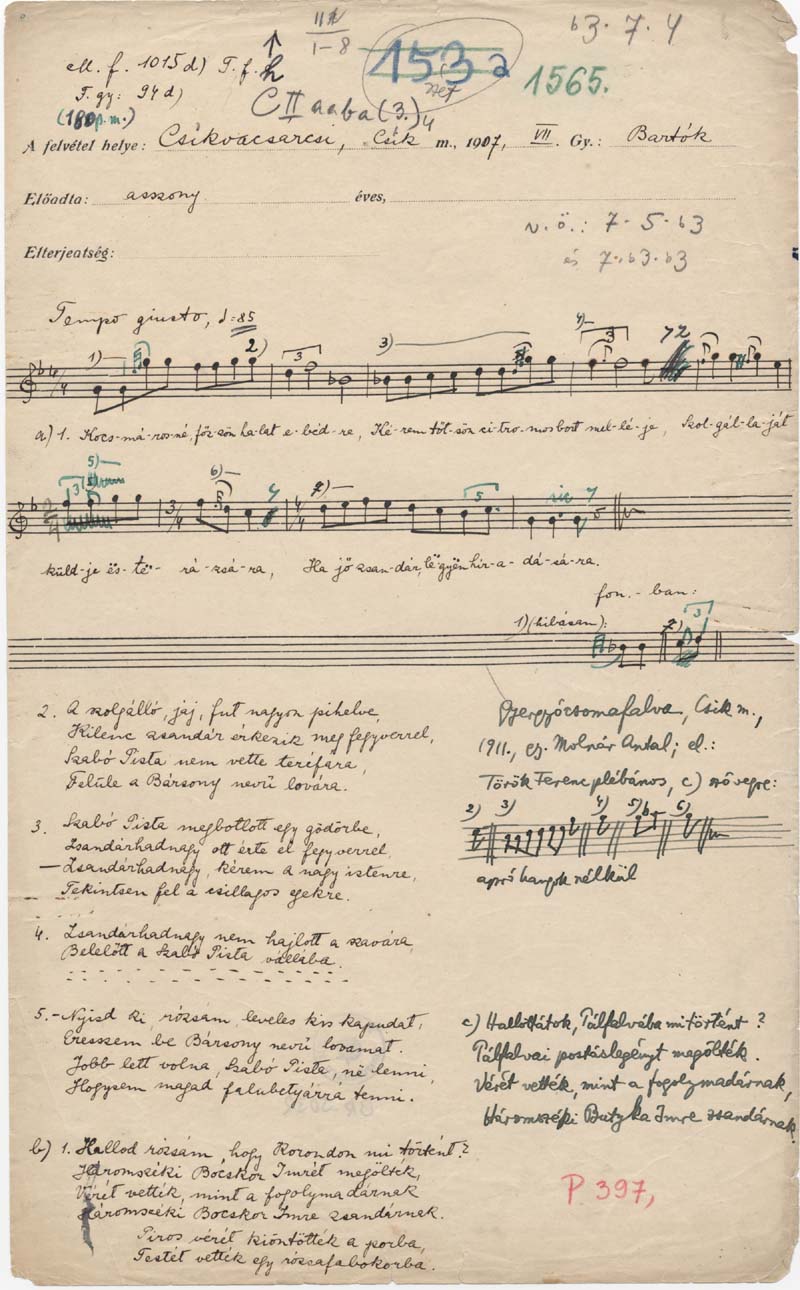 II
1–8
b3 · 7 · 4
M. f. 1015 d) T. f. h
T. gy: 94 d)
(180 p. m.)
153 a
1565.
C II aaba (3.) 4
A felvétel helye: Csíkvacsárcsi, Csík m., 1907, VII. Gy.: Bartók
Előadta: asszony éves,
v. ö.: 7 - 5 - b3
Elterjeatség:
és 7 · b3 · b3
Tempo giusto, = 85
1) 5 2) 3 3) 4) 3 72
4/4
a) 1. Kocs-má-ros-né, főz-zön ha-lat e-béd-re, Ké-rem tőt-sön ci-tro-mos bort mel-lé-je, Szol-gál-la-ját
3 5) 6) 7) 5 sic 7
2/4 3/4 4/4
küld-je ës-të- rá-zsá-ra, Ha jő zsan-dár, lë-gyën hír-a-dá-sá-ra.
fon. - ban:
1) (hibásan): 7) 3
2. A szolgálló, jáj, fut nagyon pihelve,
Kilenc zsandár érkezik meg fegyverrel,
Szabó Pista nem vette teréfára,
Felüle a Bársony nevű lovára.
3. Szabó Pista megbotlott egy gödörbe,
Zsandárhadnagy ott érte el fegyverrel,
– Zsandárhadnagy, kérem a nagy istenre,
Tekintsen fel a csillagos egekre.
4. Zsandárhadnagy nem hajlott a szavára,
Belelőtt a Szabó Pista vállába.
5. – Nyisd ki, rózsám, leveles kis kapudat,
Eresszem be Bársony nevű lovamat.
Jobb lett volna, Szabó Pista, në lenni,
Hogysem magad falubetyárrá tenni.
b) 1. Hallod rózsám, hogy Korondon mi történt?
Háromszéki Bocskor Imrét megölték,
Vérét vették, mint a fogolymadárnak
Háromszéki Bocskor Imre zsandárnak.
Piros vérét kiöntötték a porba,
Testét vették egy rózsafabokorba.
Gyergyócsomafalva, Csík m.,
1911., gy. Molnár Antal; el.:
Török Ferenc plébános, c) szövegre:
2) 3) 4) 5) 6)
apró hangok nélkül
c) Hallottátok, Pálfalvába mi történt?
Pálfalvai postáslegényt megölték.
Vérét vették, mint a fogolymadárnak,
Háromszéki Butyka Imre zsandárnak.
P 397,